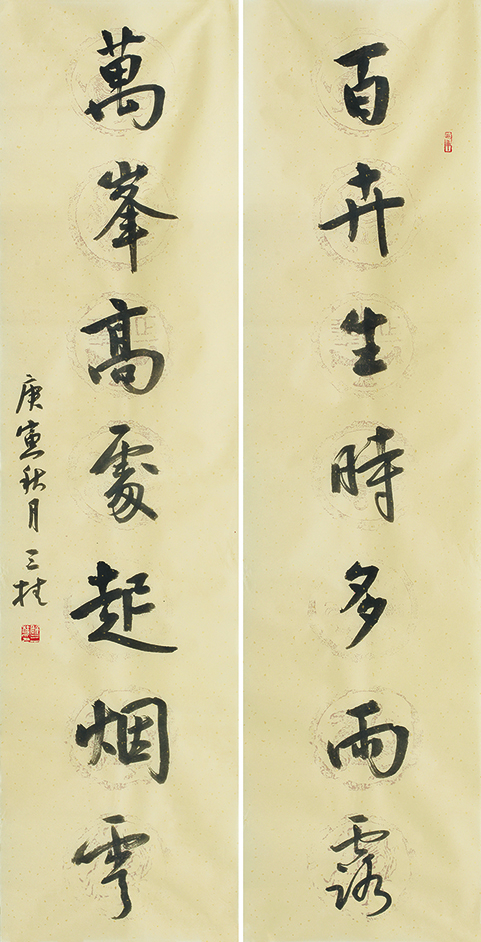 百卉生時多雨露
萬峯高處起烟雲
庚寅秋月 三桂